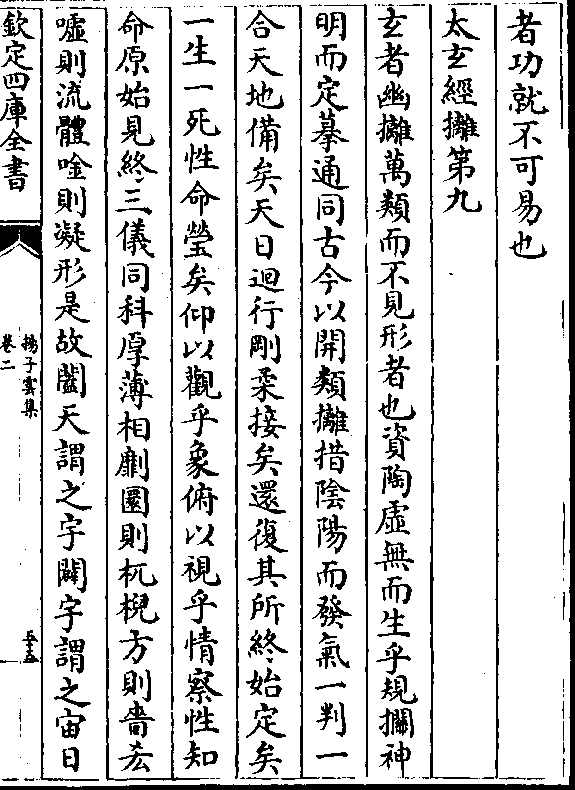 者功就不可易也
太玄經攡第九
玄者幽攡萬類而不見形者也資陶虛無而生乎規攔神
明而定摹通同古今以開類攡措陰陽而發氣一判一
合天地備矣天日迴行剛柔接矣還復其所終始定矣
一生一死性命瑩矣仰以觀乎象俯以視乎情察性知
命原始見終三儀同科厚薄相劘圜則杌棿方則嗇㳒
噓則流體唫則凝形是故闔天謂之宇闢宇謂之宙日
欽定四庫全書
揚子雲集
卷二
五十五